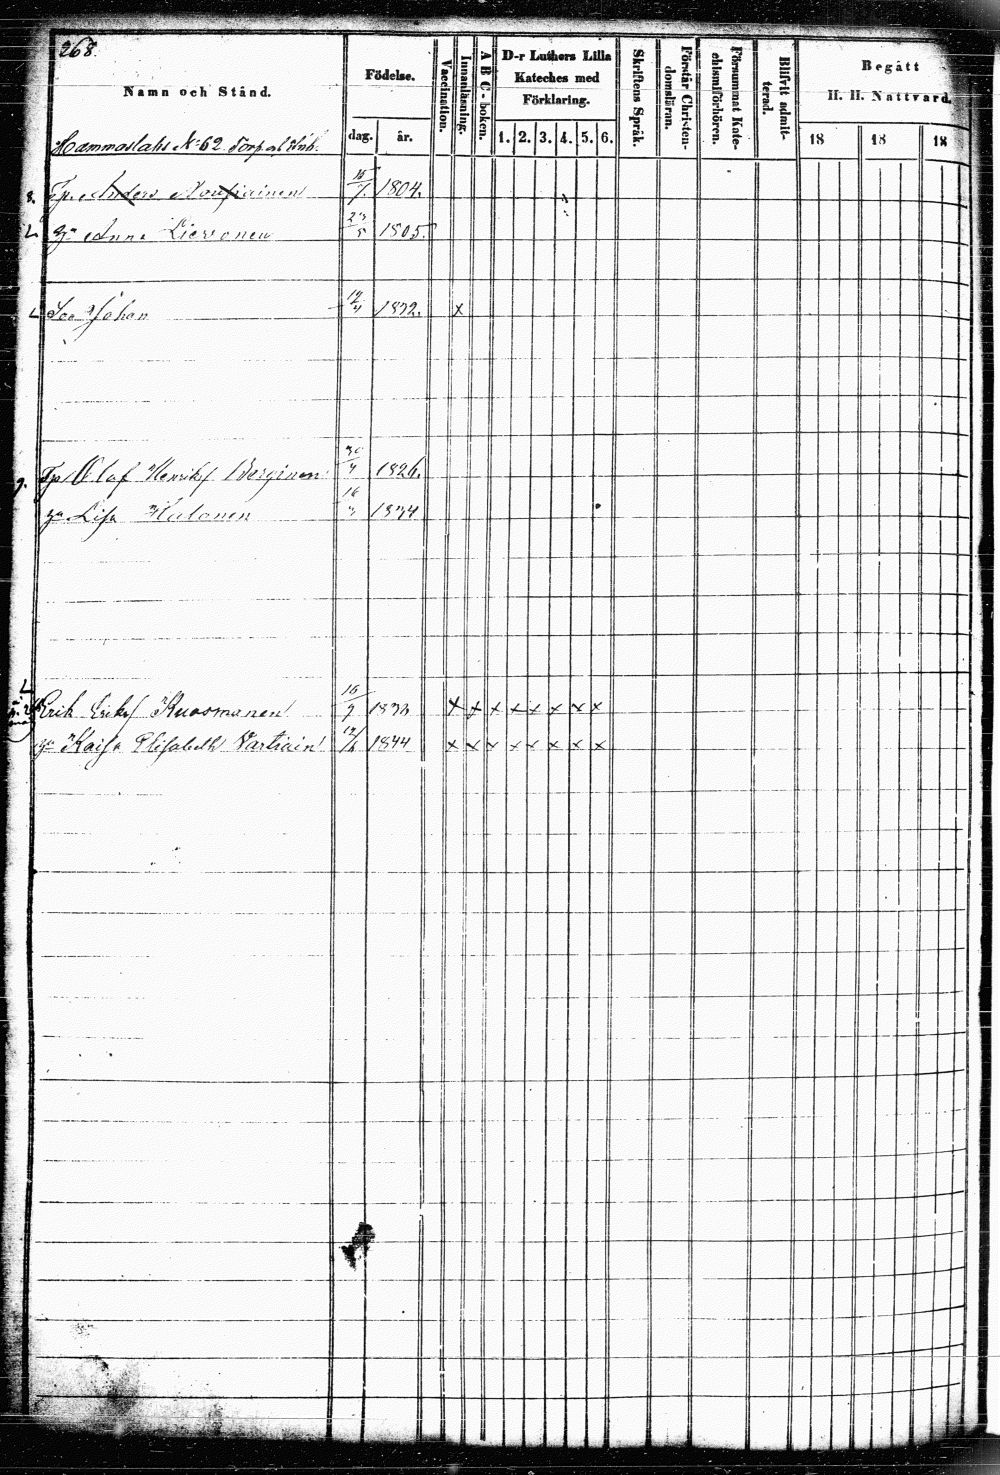 268.
Namn och Stånd.
Födelse.
dag. år.
Vaccination.
Innanläsning.
A B C - boken.
D-r Luthers Lilla
Kateches med
Förklaring.
1. 2. 3. 4. 5. 6.
Skriftens Språk.
Förstår Christen-
domsläran.
Försummat Kate-
chismiförhören.
Blifvit admit-
terad.
Begått
H. H. Nattvard.
18 18 18
Hammaslaks N:62
8. Tp. Anders 16/7. 1804.
L hu Anna 23/5 1805.
L Son Johan 1832. x
9. Tp Olof Henriks Berginen 30/7 1826.
hu Lisa Halonen 16/3 1834
L
Erik Eriks Kuosmanen 16/9 x x x x x x x x
hu Kaisa Elisabeth Vartiain 1844 x x x x x x x x